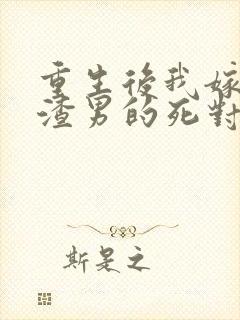 重生後我嫁
渣男的死對
斯是之